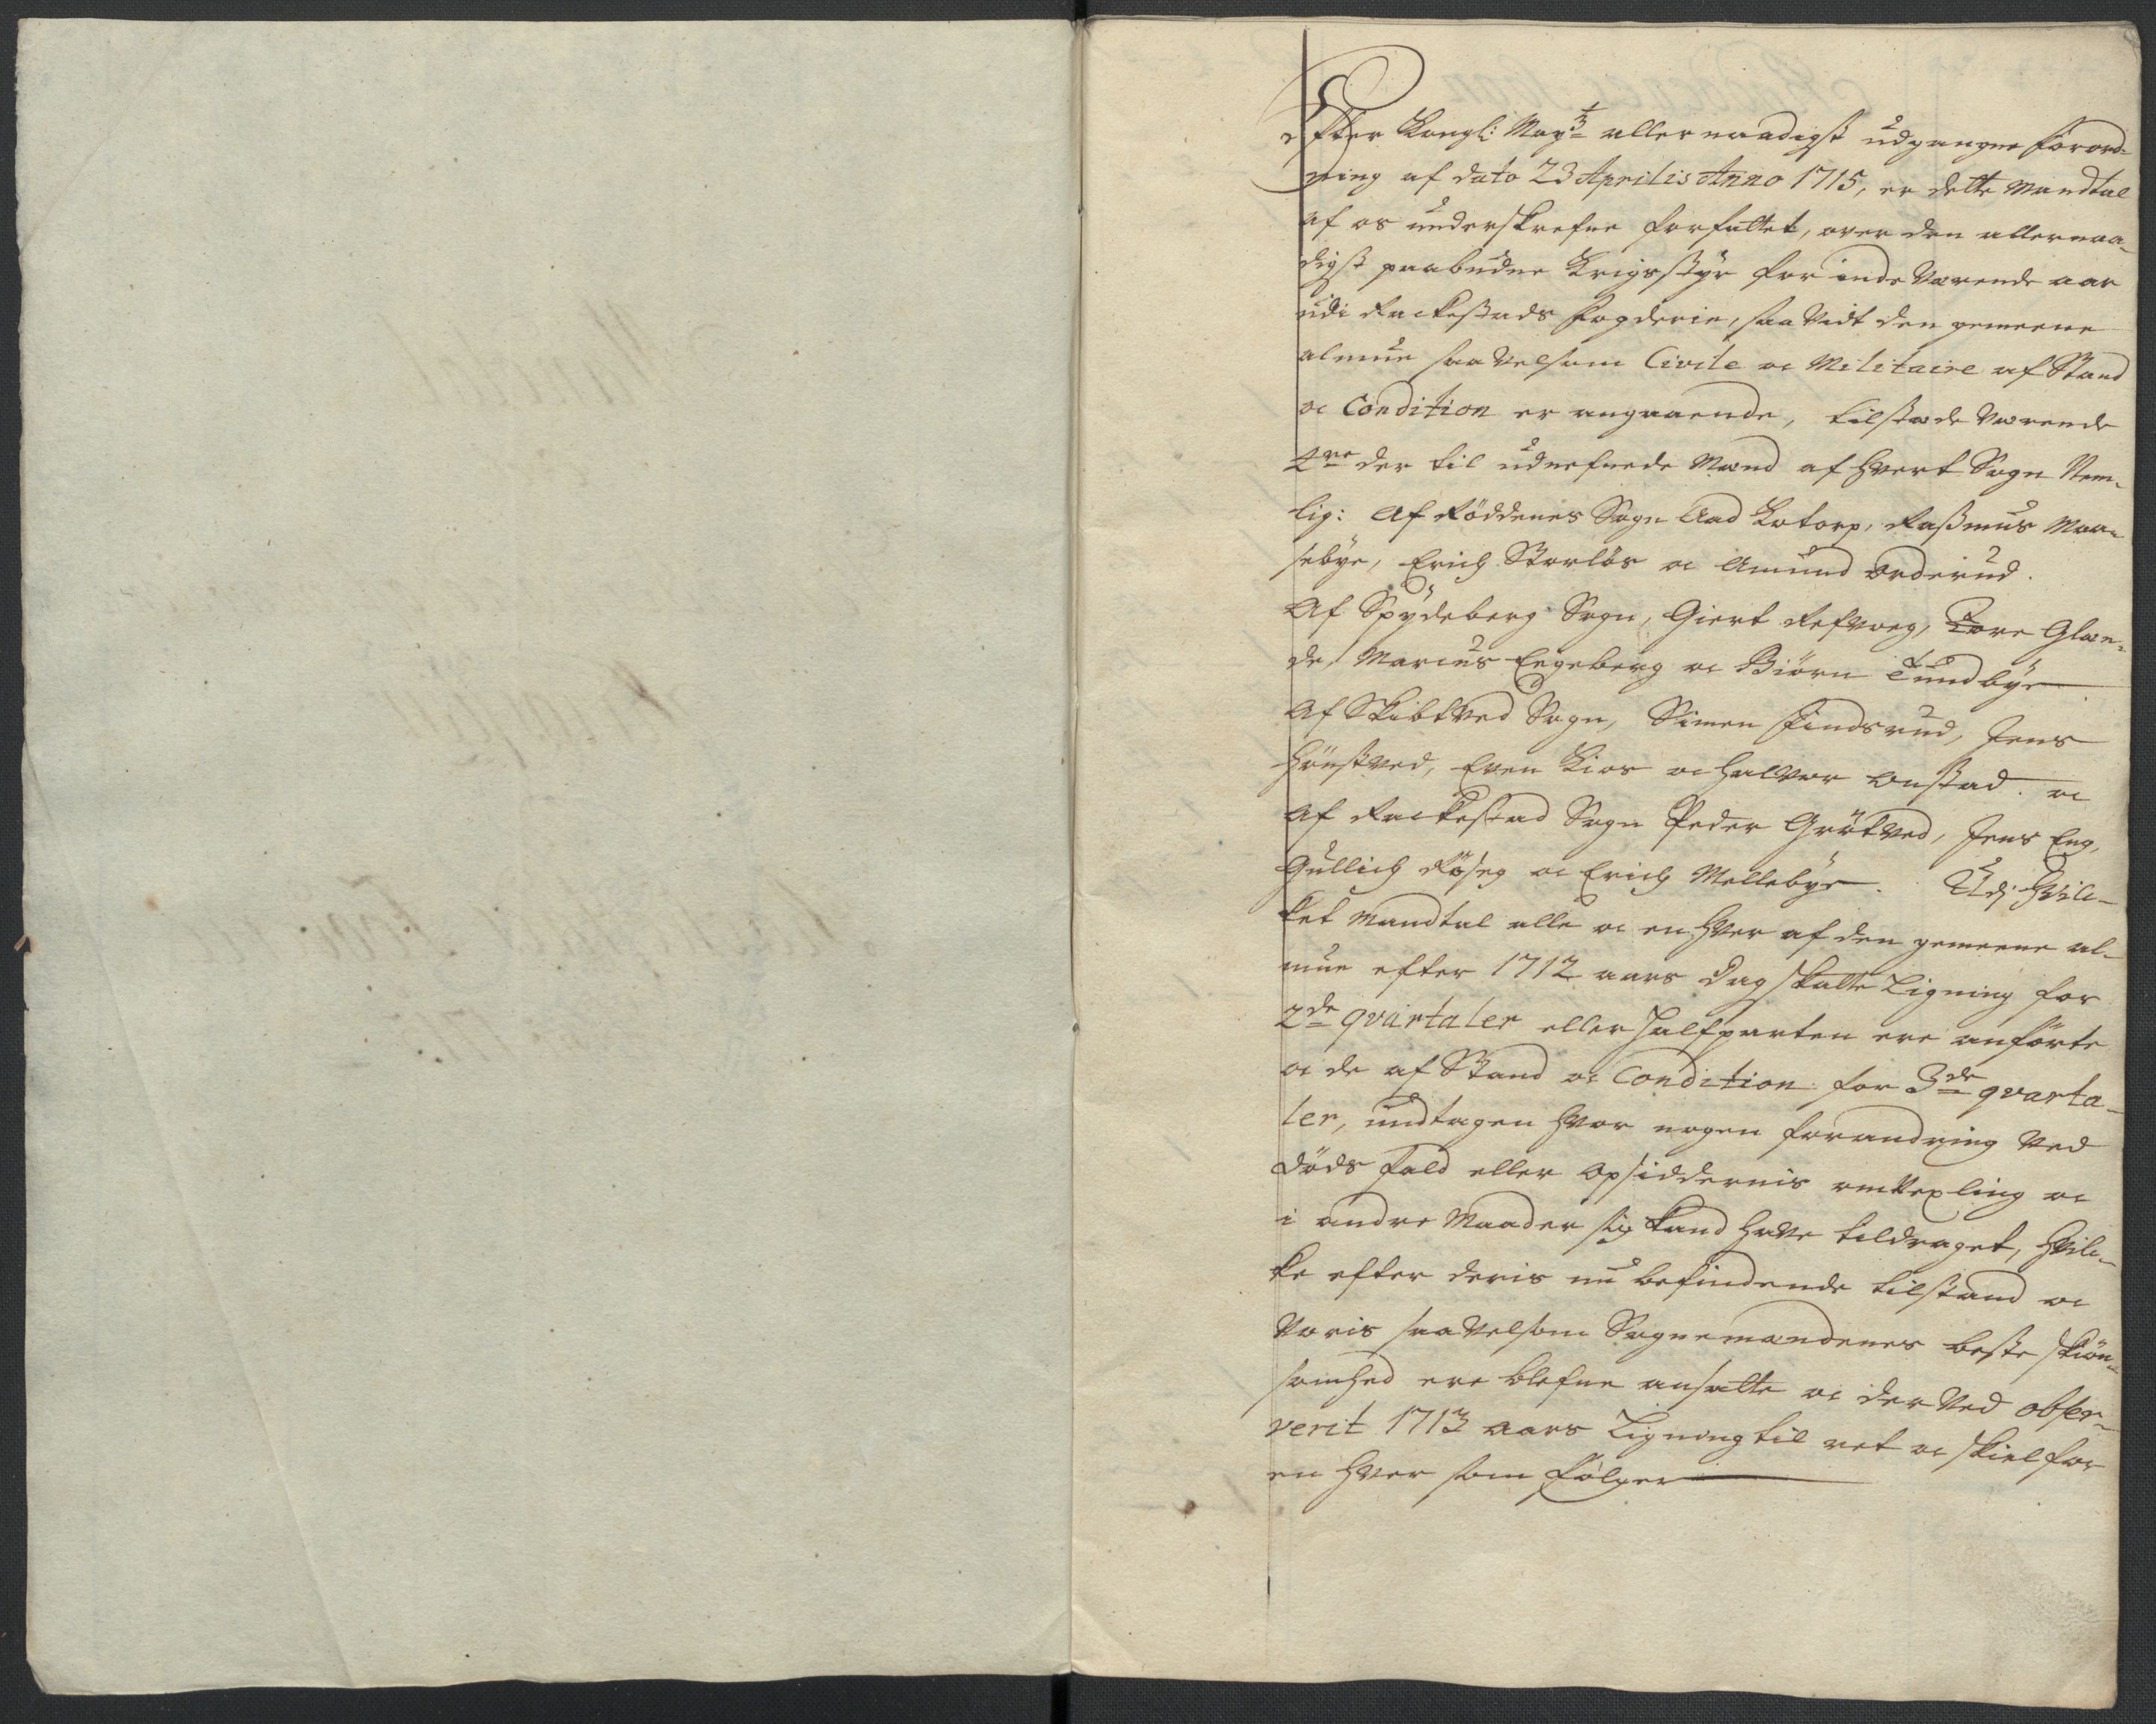 Efter Kongl: May:ts aller naadigst udgangne forord-
ning af dato 23 Aprilis Anno 1715, er dette Mandtal
af os underskrefne forfattet, over den allernaa-
digst paabudne Krigsstyr for inde Værende aar
udi Rackestads fogderie, saa Vidt den gemeene
almue saa Velsom Civile oc Militaire af Stand
oc Condition er angaaende, tilstæde Værende
4re der til udnefnede Mænd af hvert Sogn Nem-
lig: Af Röddenes Sogn Aad Kotorp, Rasmus Moe-
sebye, Erich Storlös oc Amund Orderud.
Af Spydeberg Sogn, Giert Refvoeg, Tore Glæn-
de, Marcus Engeberg oc Biörn Tundbye
Af Skibtved Sogn, Simen Findsrud, Jens
Hönstved, Even Kios oc Halvor Onstad. oc
Af Rackestad Sogn Peder Grötved, Jens Eng,
Gullich Röseg oc Erich Mellebye. Udj hvilc-
ket Mandtal alle oc en hver af den gemeene al-
mue efter 1712 aars Dag skatte Ligning for
2de qvartaler eller Halfparten ere anförte
oc de af Stand oc Condition for 3de qvarta-
ler, undtagen hvor nogen forandring Ved
döds fald eller opsiddernis omVexling oc
i andre Maader sig kand have tildraget, hvilc-
ke efter deris nu befindende tilstand oc
Voris saa Velsom Sognemændenes beste skiön-
somhed ere blefne ansatte oc der Ved obser-
verit 1713 aars Ligning til ret oc skiel for
en hver som fölger